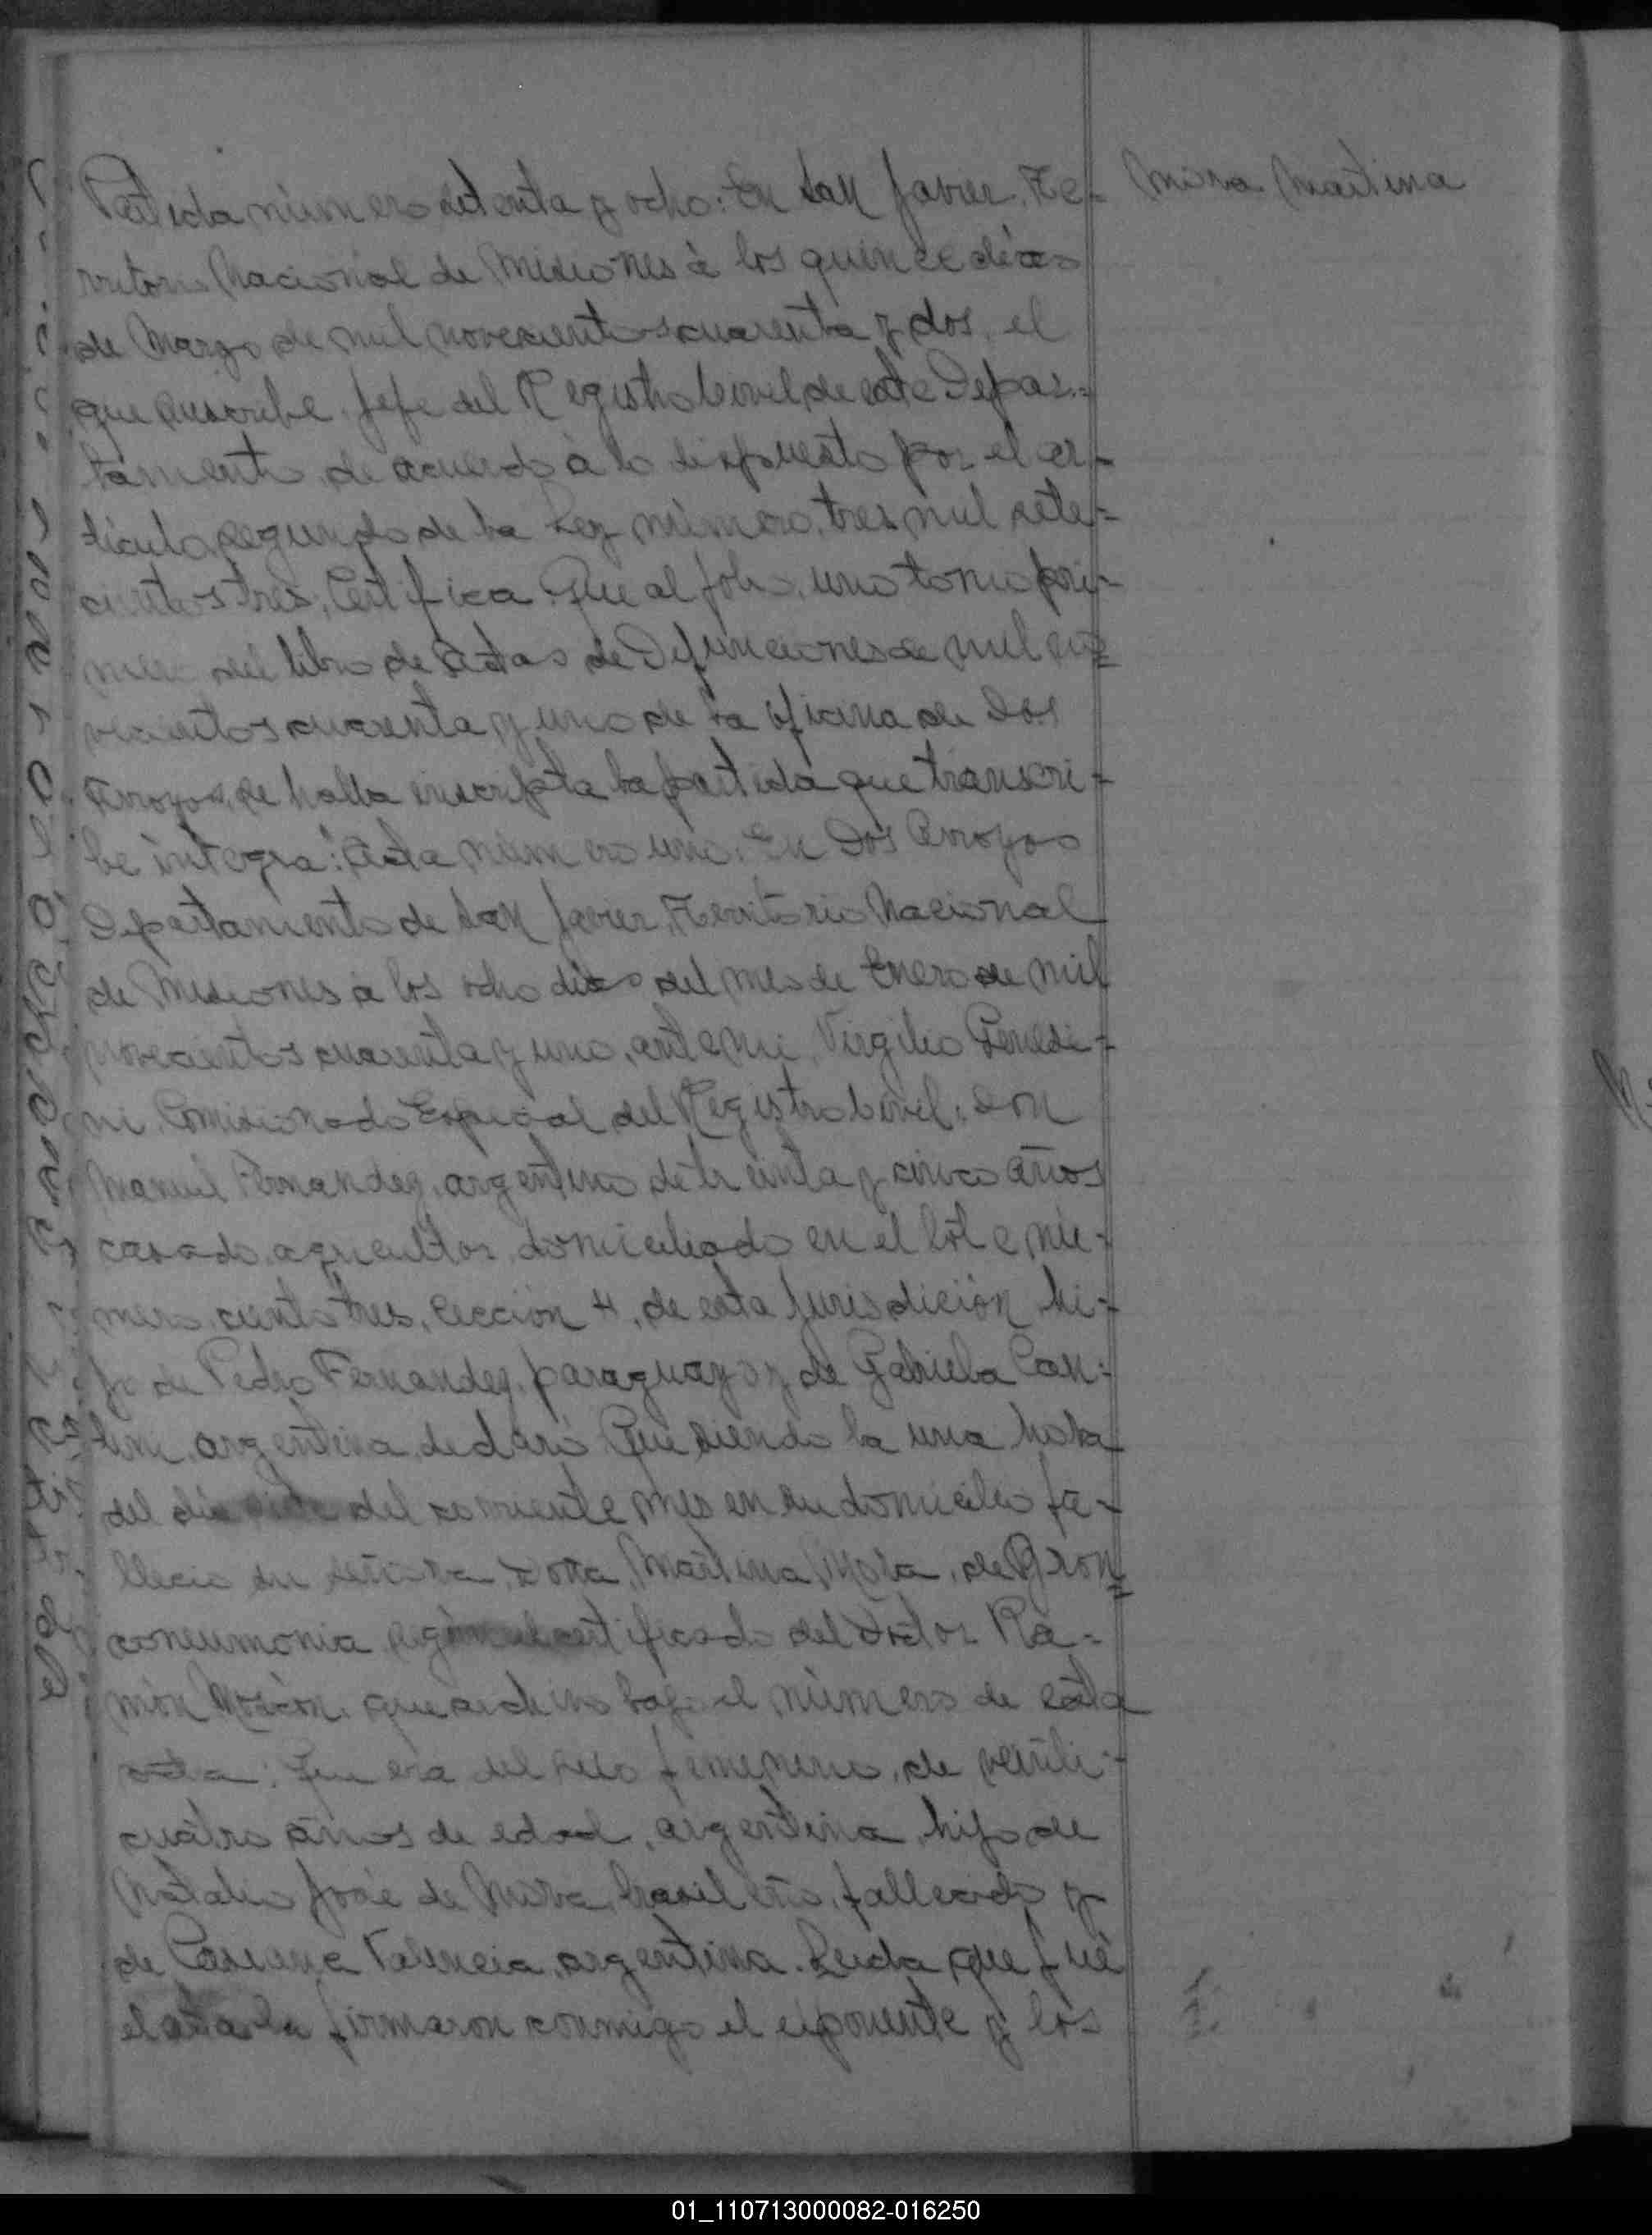 Partida número setenta y ocho: En San Javier, Te-
Mora Martina
rritorio Nacional de Misiones á los quince dias
de Marzo de mil novecientos cuarenta y dos, el
que suscribe, Jefe del Registro Civil de este Depar-
tamento, de acuerdo á lo dispuesto por el ar-
tículo segundo de la Ley número, tres mil sete-
cientos tres, Certifica: Que al folio, uno tomo pri-
mero del libro de Actas de Defunciones de mil no-
vecientos cuarenta y uno de la oficina de Dos
Arroyos, se halla inscripta la partida que transcri-
be íntegra: "Acta número uno: En Dos Arroyos
Departamento de San Javier, Territorio Nacional
de Misiones á los ocho dias del mes de Enero de mil
novecientos cuarenta y uno, ante mi, Virgilio
Comisionado Especial del Registro Civil: Don
Manuel Fernandez, argentino de treinta y cinco años
casado, agricultor, domiciliado en el lote nú-
mero, ciento tres, Sección 4, de esta Jurisdición, hi-
jo de Pedro Fernandez, paraguayo y de Gabriela
argentina, declaró: Que siendo la una hora
del día del corriente mes en su domicilio fa-
lleció su señora, Doña, Martina Mora, de Bron-
coneumonia según el certificado del Doctor Ra-
món que archivo bajo el número de esta
acta: Que era del sexo femenino, de veinti-
cuatro años de edad, argentina, hijo de
Natalio José de Mora, brasileño, fallecido y
de Valencia, argentina. Leida que fué
el acta la firmaron conmigo el exponente y los
01_110713000082-016250